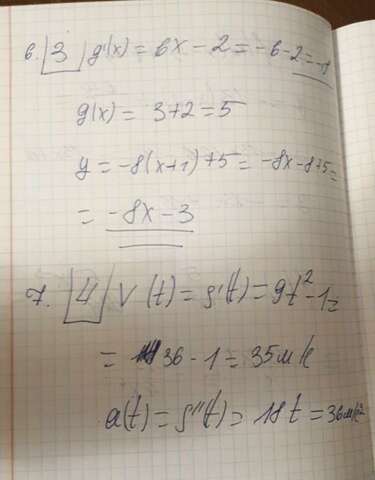 6. 3 g'(x) = 6x - 2 = -6 - 2 = -8
g(x) = 3 + 2 = 5
y = -8(x+1) + 5 = -8x - 8 + 5 =
= -8x - 3
7. 4 V(t) = s'(t) = 9t² - 1 =
= 36 - 1 = 35 м/с
a(t) = s''(t) = 18t = 36 м/с²